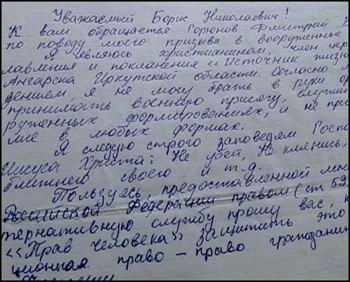 Уважаемый Борис Николаевич!
К вам обращается Горюнов Дмитрий В
по поводу моего призыва в вооруженные
Я являюсь христианином, член цер
лавления и поклонения и Источник жизн
Ангарска Иркутской области. Согласно м
дениям я не могу брать в руки ор
принимать военную присягу, служит
руженных формированиях, и не пра
лие в любых формах.
Я следую строго заповедям Госпо
Иисуса Христа: Не убей, Не клянись,
ближнего своего и т.д.
Пользуясь, предоставленной мне
Российской Федерации правом (ст 59.
тернативную службу прошу вас, к
«Прав человека» защитить это
ционная право - право граждани